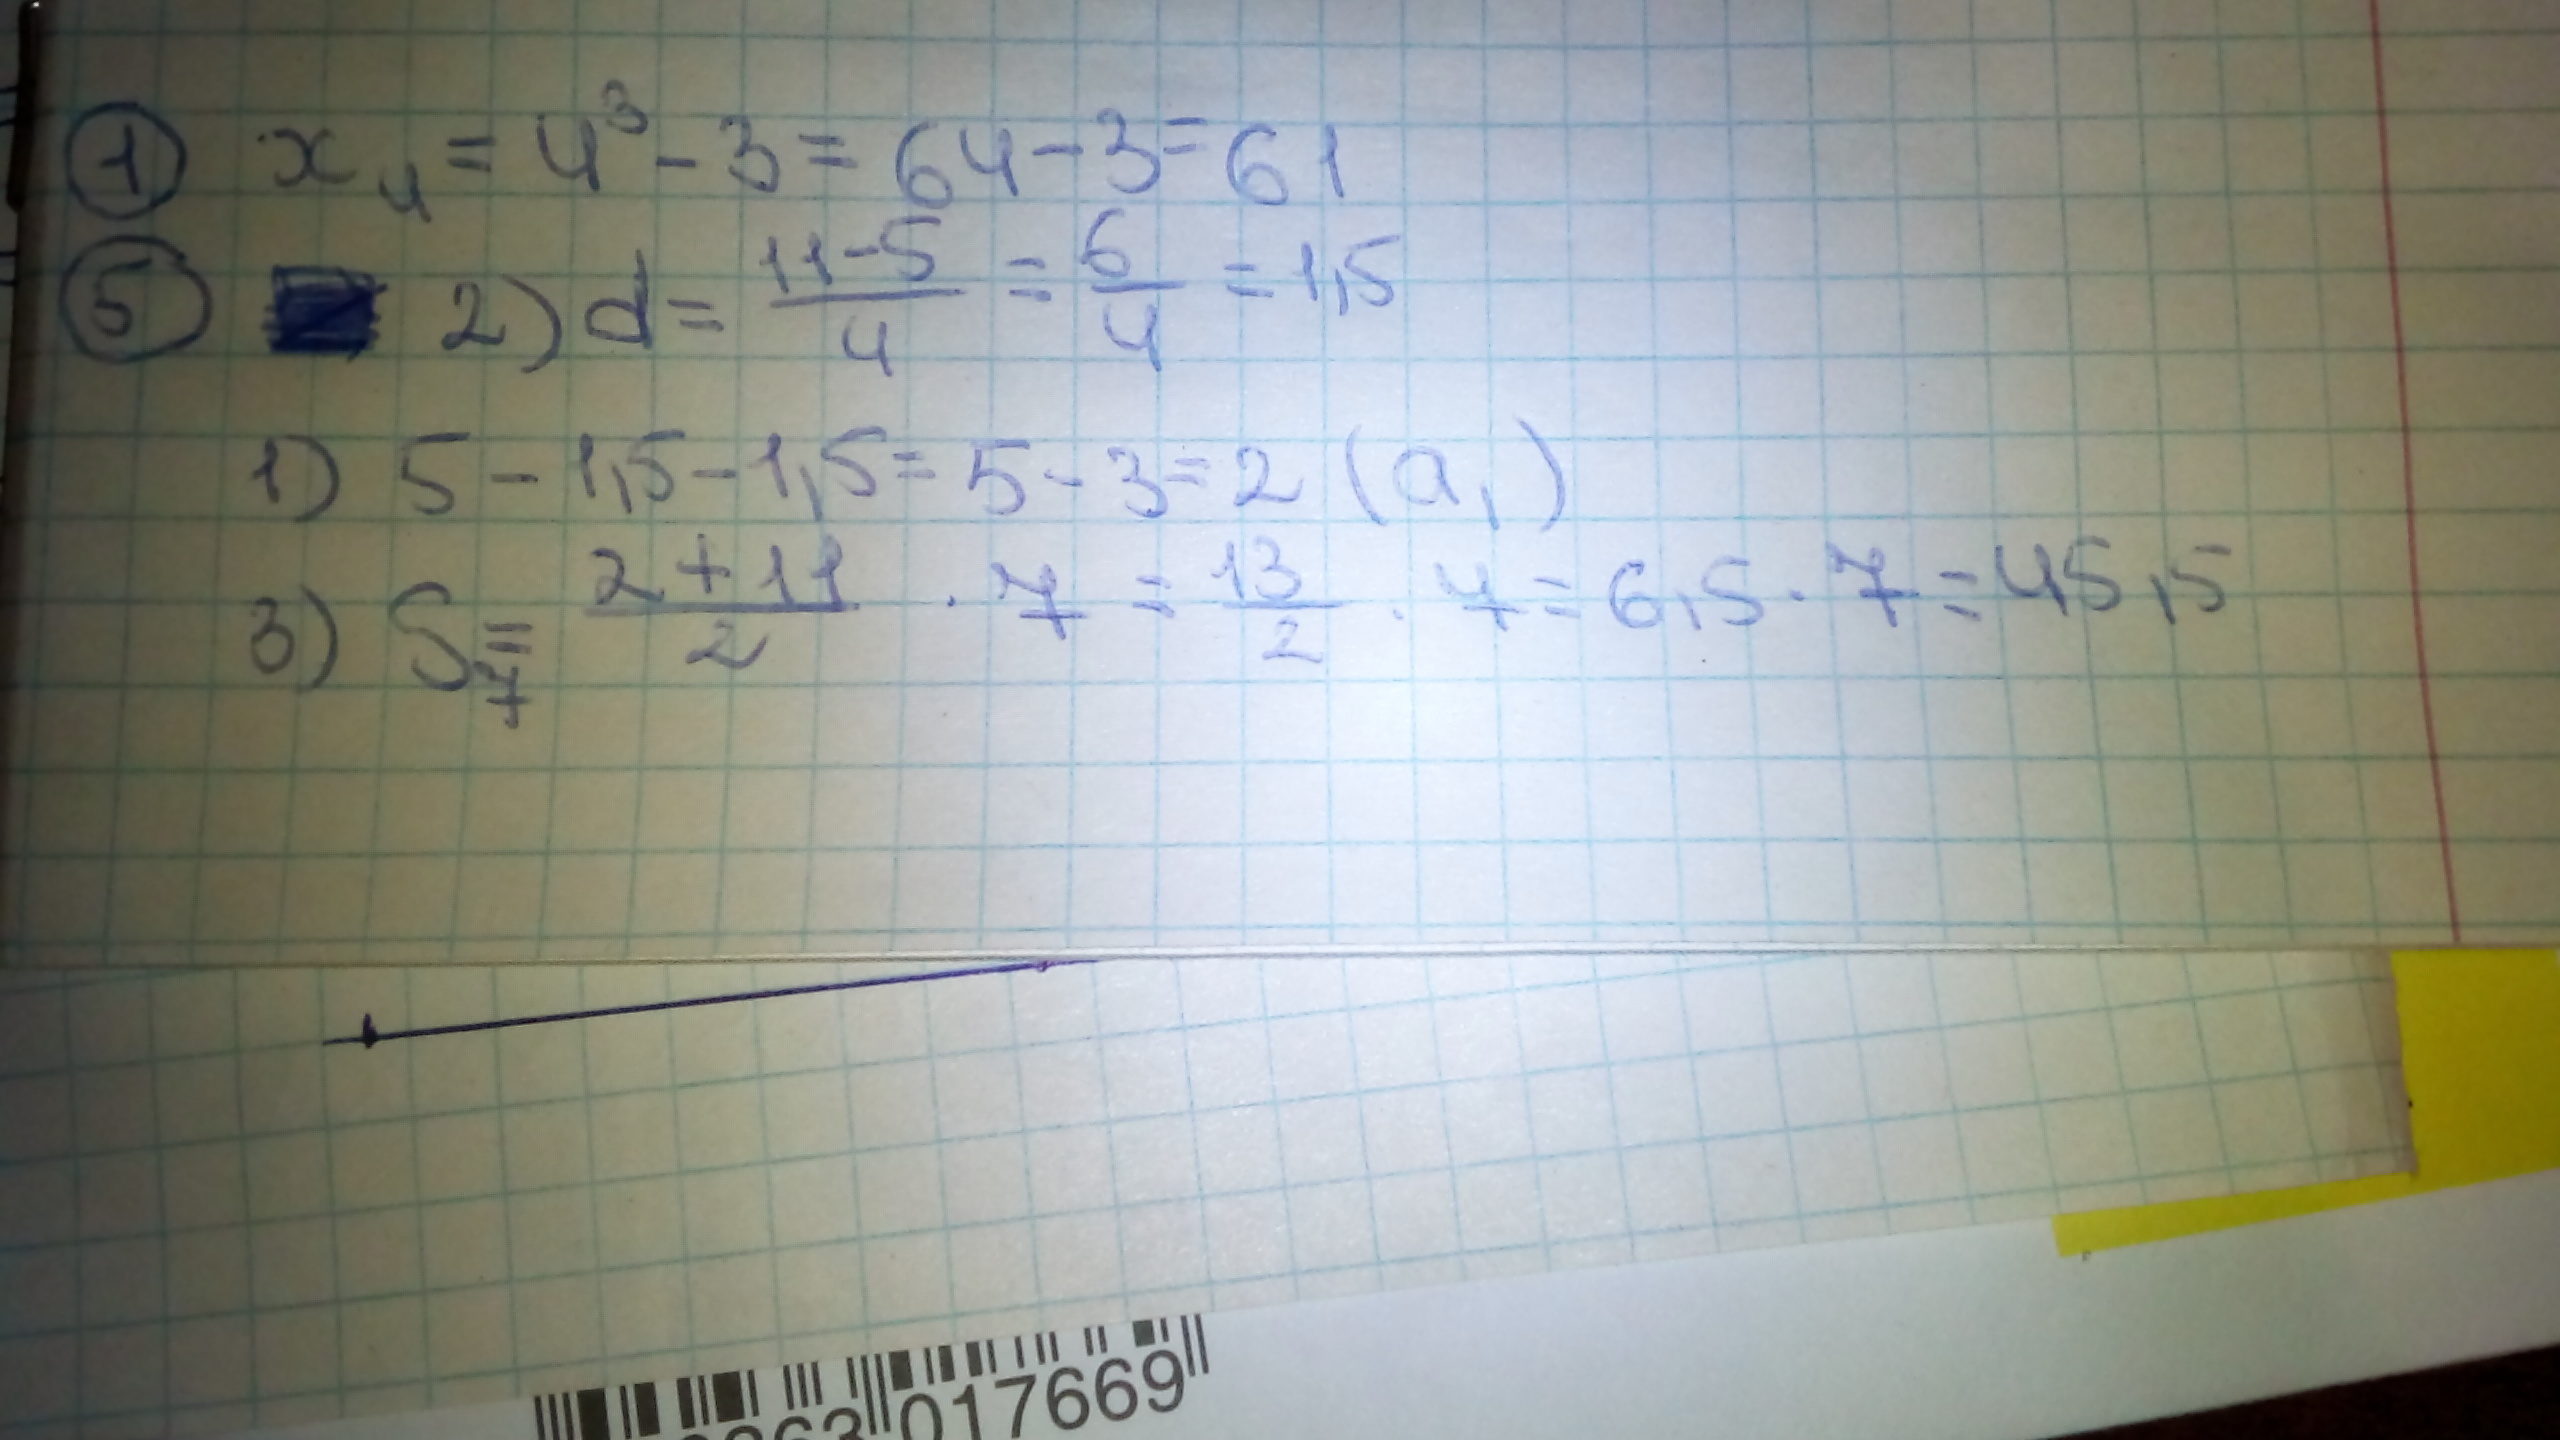 1 x₄ = 4³ - 3 = 64 - 3 = 61
5 2) d = (11-5)/4 = 6/4 = 1,5
1) 5 - 1,5 - 1,5 = 5 - 3 = 2 (a₁)
3) S₇ = (2+11)/2 · 7 = 13/2 · 7 = 6,5 · 7 = 45,5
017669